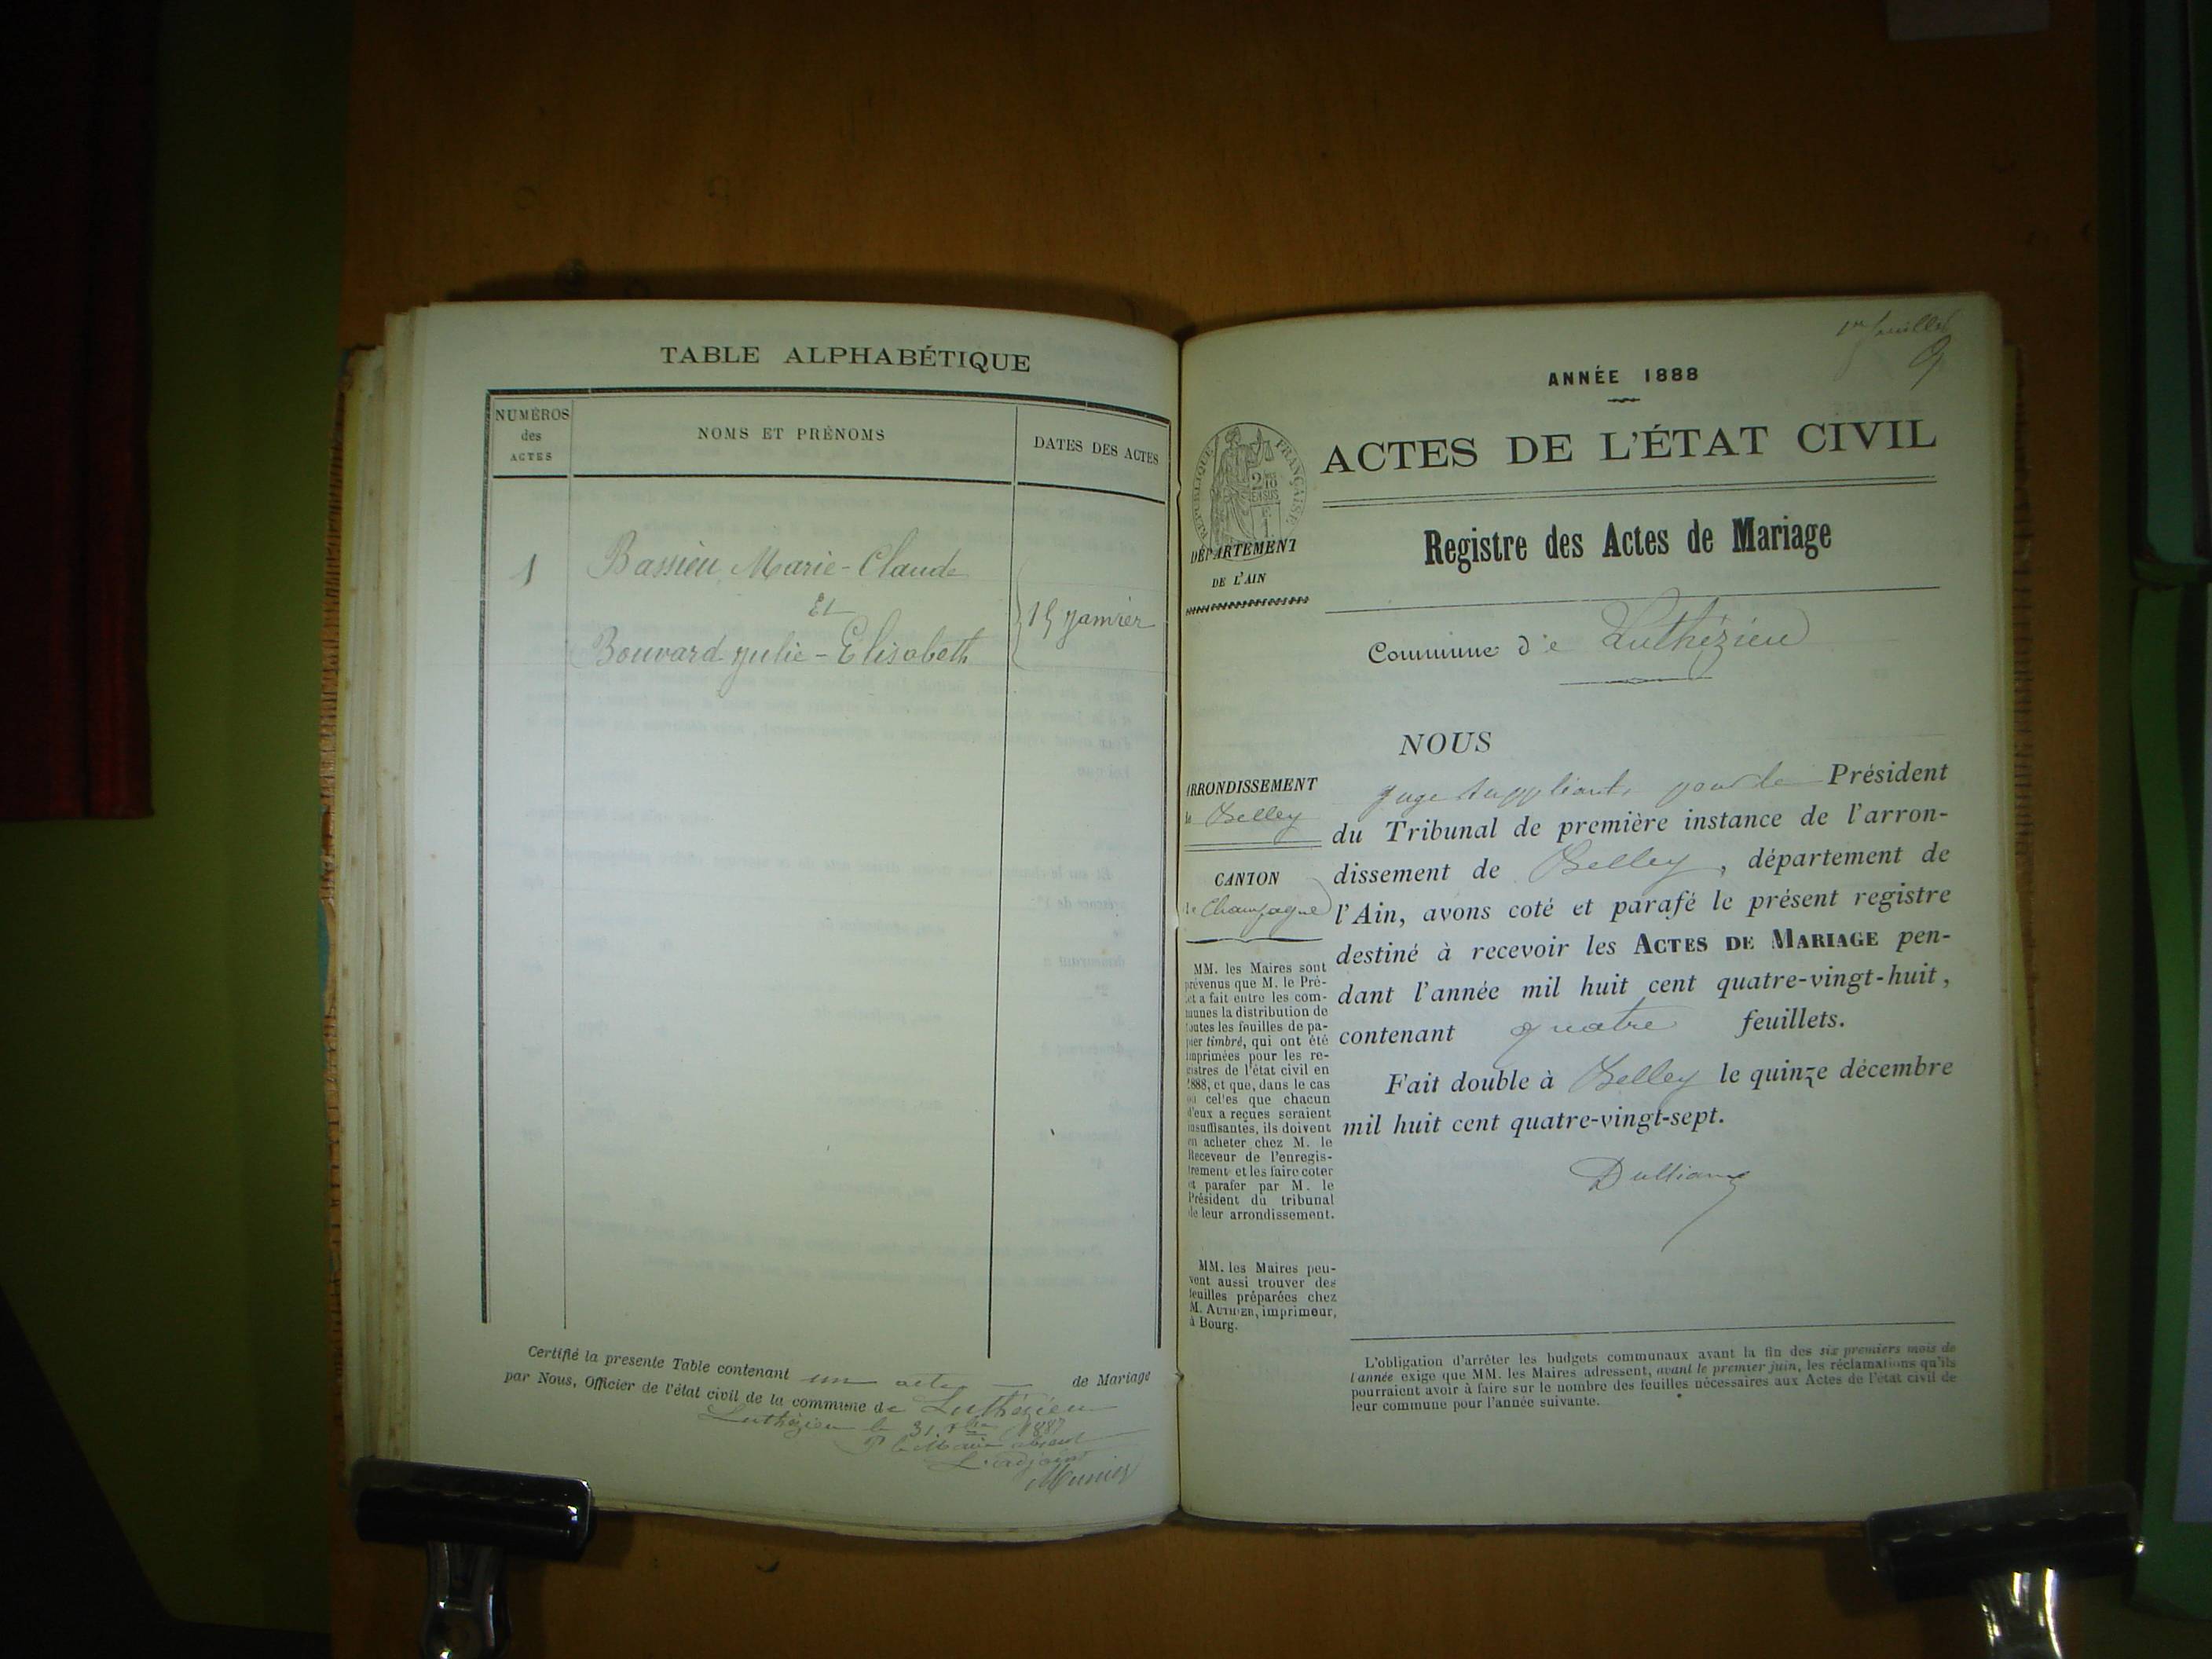 TABLE ALPHABÉTIQUE
NUMÉROS
des
ACTES
NOMS ET PRÉNOMS
DATES DES ACTES
1
Bassieu Marie-Claude
Et
Bouvard Julie-Elisabeth
15 Janvier
Certifié la presente Table contenant un acte de Mariage
par Nous, Officier de l'état civil de la commune de Luthézieu
Luthézieu le 31 Xbre 1887
Pr le Maire absent
L'adjoint
Munier
1er feuillet
ANNÉE 1888
RÉPUBLIQUE FRANÇAISE
ACTES DE L'ÉTAT CIVIL
Registre des Actes de Mariage
DÉPARTEMENT
DE L'AIN
Commune de Luthézieu
NOUS
Juge suppléant, pour le Président
du Tribunal de première instance de l'arron-
dissement de Belley, département de
l'Ain, avons coté et parafé le présent registre
destiné à recevoir les ACTES DE MARIAGE pen-
dant l'année mil huit cent quatre-vingt-huit,
contenant quatre feuillets.
Fait double à Belley le quinze décembre
mil huit cent quatre-vingt-sept.
Dulliand
ARRONDISSEMENT
de Belley
CANTON
de Champagne
MM. les Maires sont
prévenus que M. le Pré-
fet a fait entre les com-
munes la distribution de
toutes les feuilles de pa-
pier timbré, qui ont été
imprimées pour les re-
gistres de l'état civil en
1888, et que, dans le cas
où celles que chacun
d'eux a reçues seraient
insuffisantes, ils doivent
en acheter chez M. le
Receveur de l'enregis-
trement et les faire coter
et parafer par M. le
Président du tribunal
de leur arrondissement.
MM. les Maires peu-
vent aussi trouver des
feuilles préparées chez
M. AUTHIER, imprimeur,
à Bourg.
L'obligation d'arrêter les budgets communaux avant la fin des six premiers mois de
l'année exige que MM. les Maires adressent, avant le premier juin, les réclamations qu'ils
pourraient avoir à faire sur le nombre des feuilles nécessaires aux Actes de l'état civil de
leur commune pour l'année suivante.